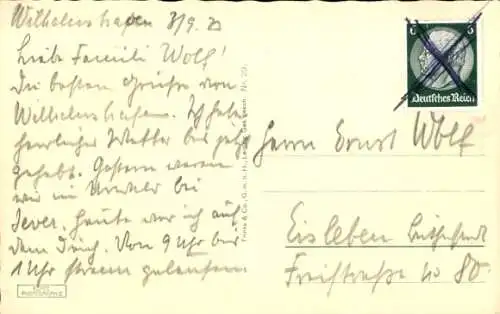 Wilhelmshafen 3/9.
Liebe Familie Wolf!
Die besten Grüsse von
Wilhelmshafen. Ich habe
herrliches Wetter bis jetzt
gehabt. Gestern waren
wir im Urwald bei
Jever, heute war ich auf
dem Deich. Von 9 Uhr bis
1 Uhr stram gelaufen
6
6
Deutsches Reich
Herrn Ernst Wolf
Eisleben Lutherstadt
Freistraße No 80